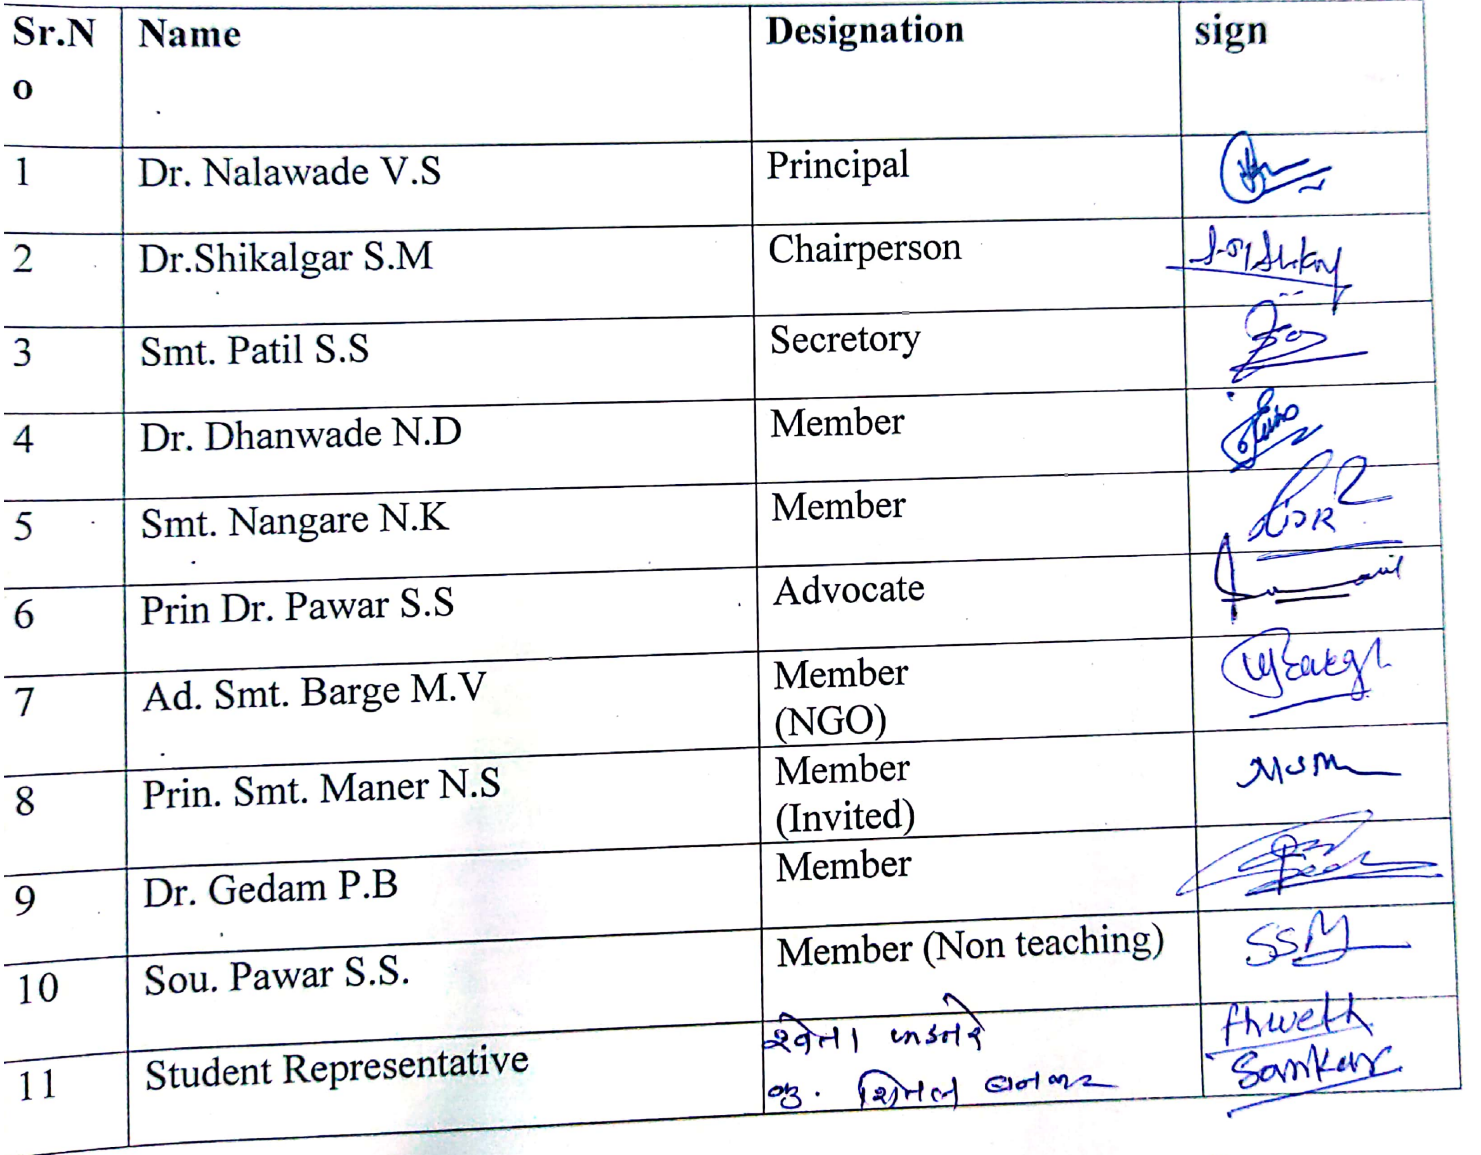 Sr.N Name Designation sign
o
1 Dr. Nalawade V.S Principal
2 Dr.Shikalgar S.M Chairperson
3 Smt. Patil S.S Secretory
4 Dr. Dhanwade N.D Member
5 Smt. Nangare N.K Member
6 Prin Dr. Pawar S.S Advocate
7 Ad. Smt. Barge M.V Member
(NGO)
8 Prin. Smt. Maner N.S Member
(Invited)
9 Dr. Gedam P.B Member
10 Sou. Pawar S.S. Member (Non teaching) SSM
11 Student Representative श्वेता
कु.